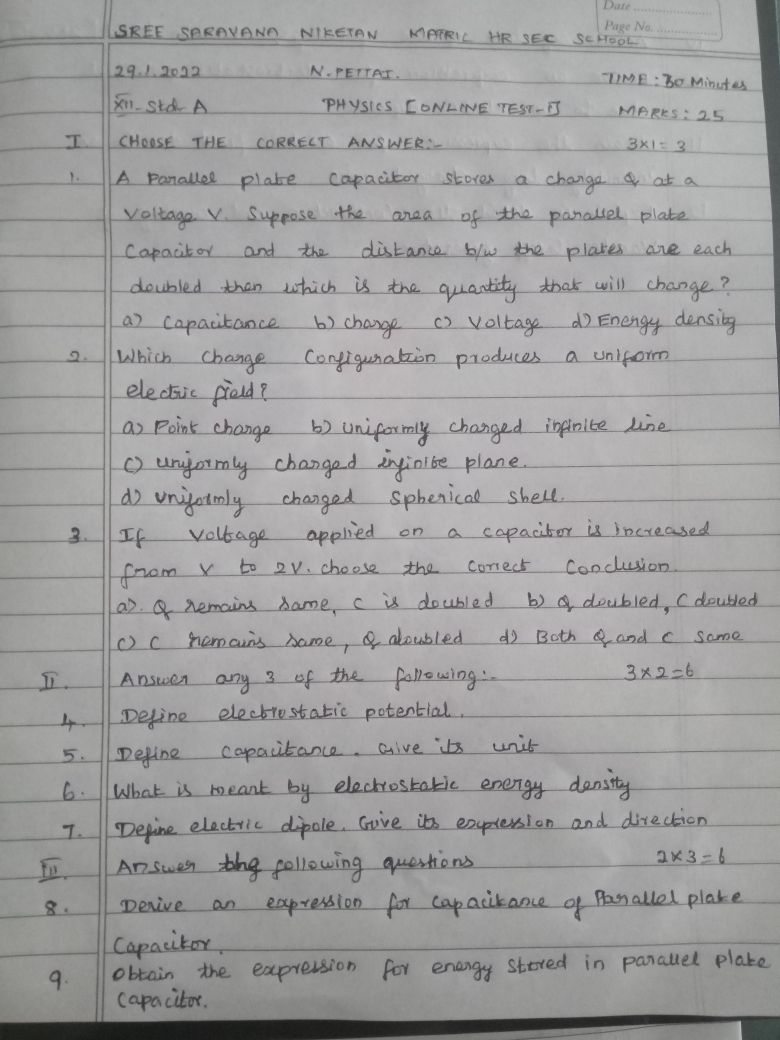 Date
Page No.
SREE SARAVANA NIKETAN MATRIC HR SEC SCHOOL
29.1.2022 N.PETTAI. TIME : 30 Minutes
XII- Std- A PHYSICS [ONLINE TEST-I] MARKS: 25
I CHOOSE THE CORRECT ANSWER:- 3x1=3
1. A Parallel plate capacitor stores a charge Q at a
voltage V. Suppose the area of the parallel plate
Capacitor and the distance b/w the plates are each
doubled then which is the quantity that will change?
a) Capacitance b) charge c) Voltage d) Energy density
2. Which charge Configuration produces a uniform
electric field?
a) Point charge b) uniformly charged infinite line
c) uniformly charged infinite plane.
d) uniformly charged spherical shell.
3. If voltage applied on a capacitor is increased
from V to 2V. choose the correct Conclusion.
a). Q remains same, C is doubled b) Q doubled, C doubled
c) C remains same, Q doubled d) Both Q and C same
II. Answer any 3 of the following:- 3x2=6
4. Define electrostatic potential.
5. Define capacitance. Give its unit
6. What is meant by electrostatic energy density
7. Define electric dipole. Give its expression and direction
III Answer the following questions 2x3=6
8. Derive an expression for capacitance of Parallel plate
Capacitor.
9. Obtain the expression for energy stored in parallel plate
Capacitor.